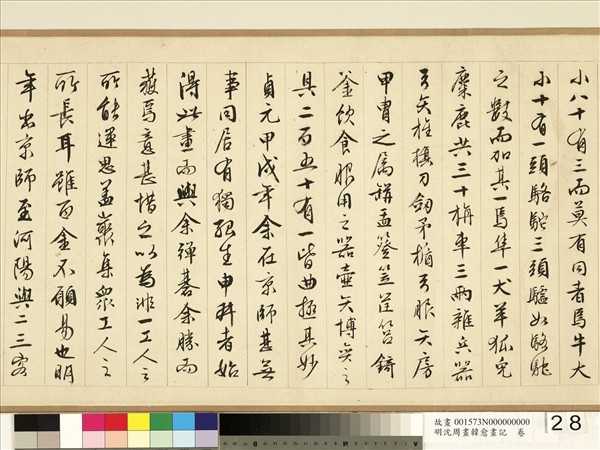 小八十有三而莫有同者焉牛大
小十有一頭駱駝三頭驢如駱駝
之數而加其一焉隼一犬羊狐兔
麋鹿共三十旃車三兩雜兵器
弓矢旌旗刀劒矛楯弓服矢房
甲冑之属缾盂簦笠筐筥錡
釜飲食服用之器壺矢博奕之
具二百五十有一皆曲極其妙
貞元甲戌年余在京師甚無
事同居有獨孤生申叔者始
得此畫而與余彈碁余勝而
獲焉意甚惜之以為非一工人之
所能運思盖藂集眾工人之
所長耳雖百金不願易也明
年出京師至河陽與二三客
故畫 001573N000000000
明沈周畫韓愈畫記 卷
28